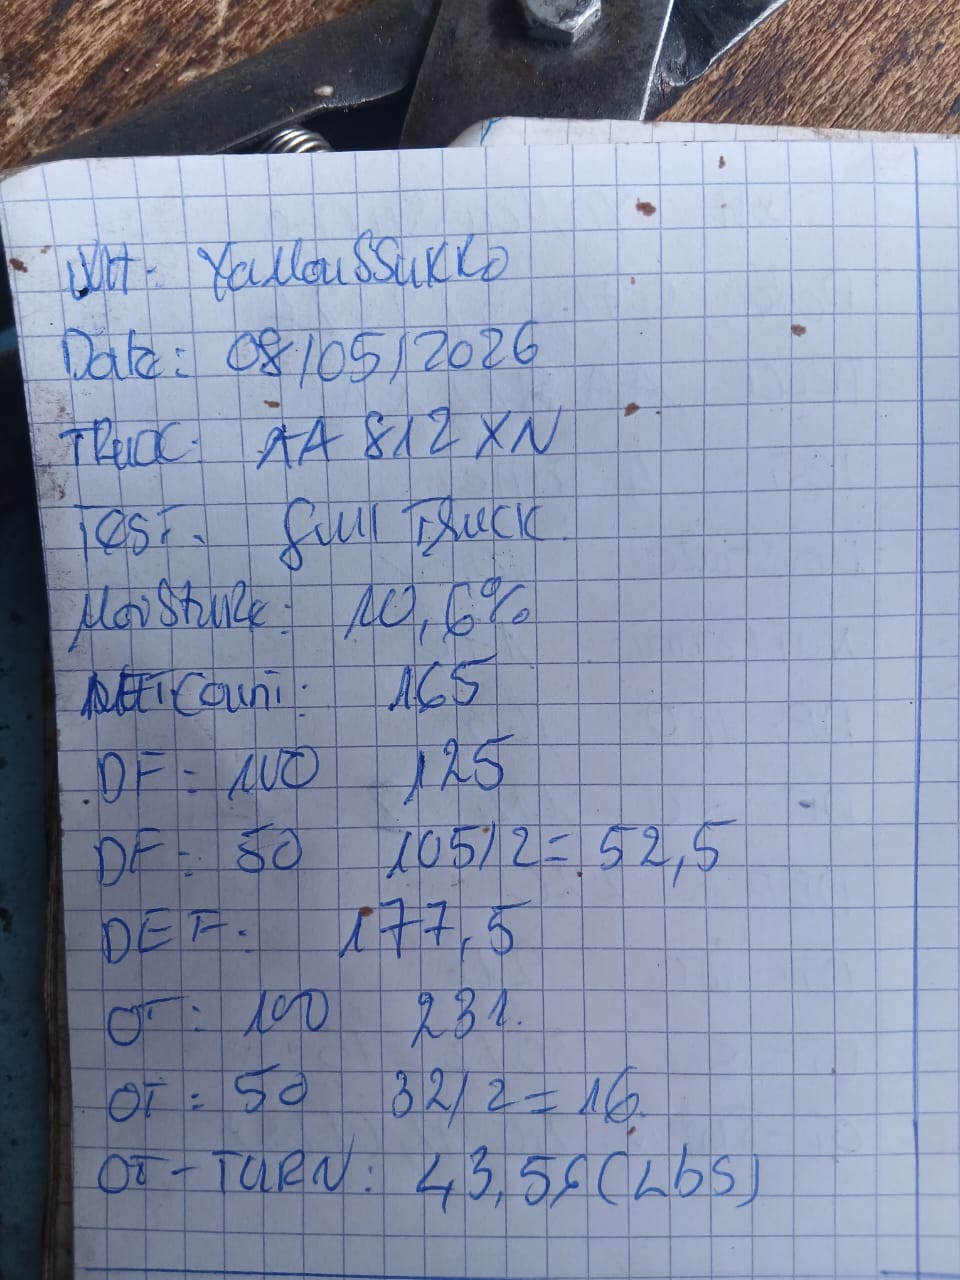 WH: YaMouSSuKRo
Date: 08/05/2026
TRUCK: AA 812 XN
TEST: full Truck
MoiSTuRe: 10,6%
NUTCount: 165
DF: 100 125
DF: 50 105/2= 52,5
DEF: 177,5
OT: 100 231.
OT: 50 32/2=16.
OT-TURN: 43,56(Lbs)